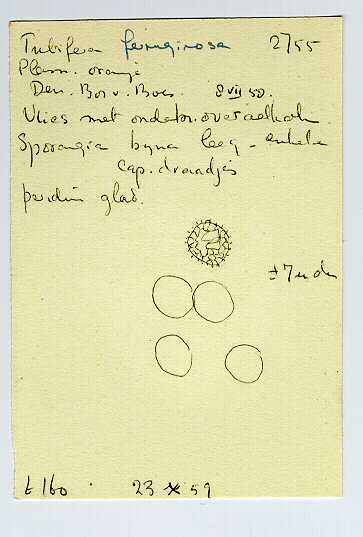 Tubifera ferruginosa 2755
Plasm. oranje
Den. Bos v. Boes. 8 VII 59.
Vlies met onder
Sporangia byna leeg - enkele
cap. draadjes
peridium glad.
± 7 u
t 160 . 23 X 59